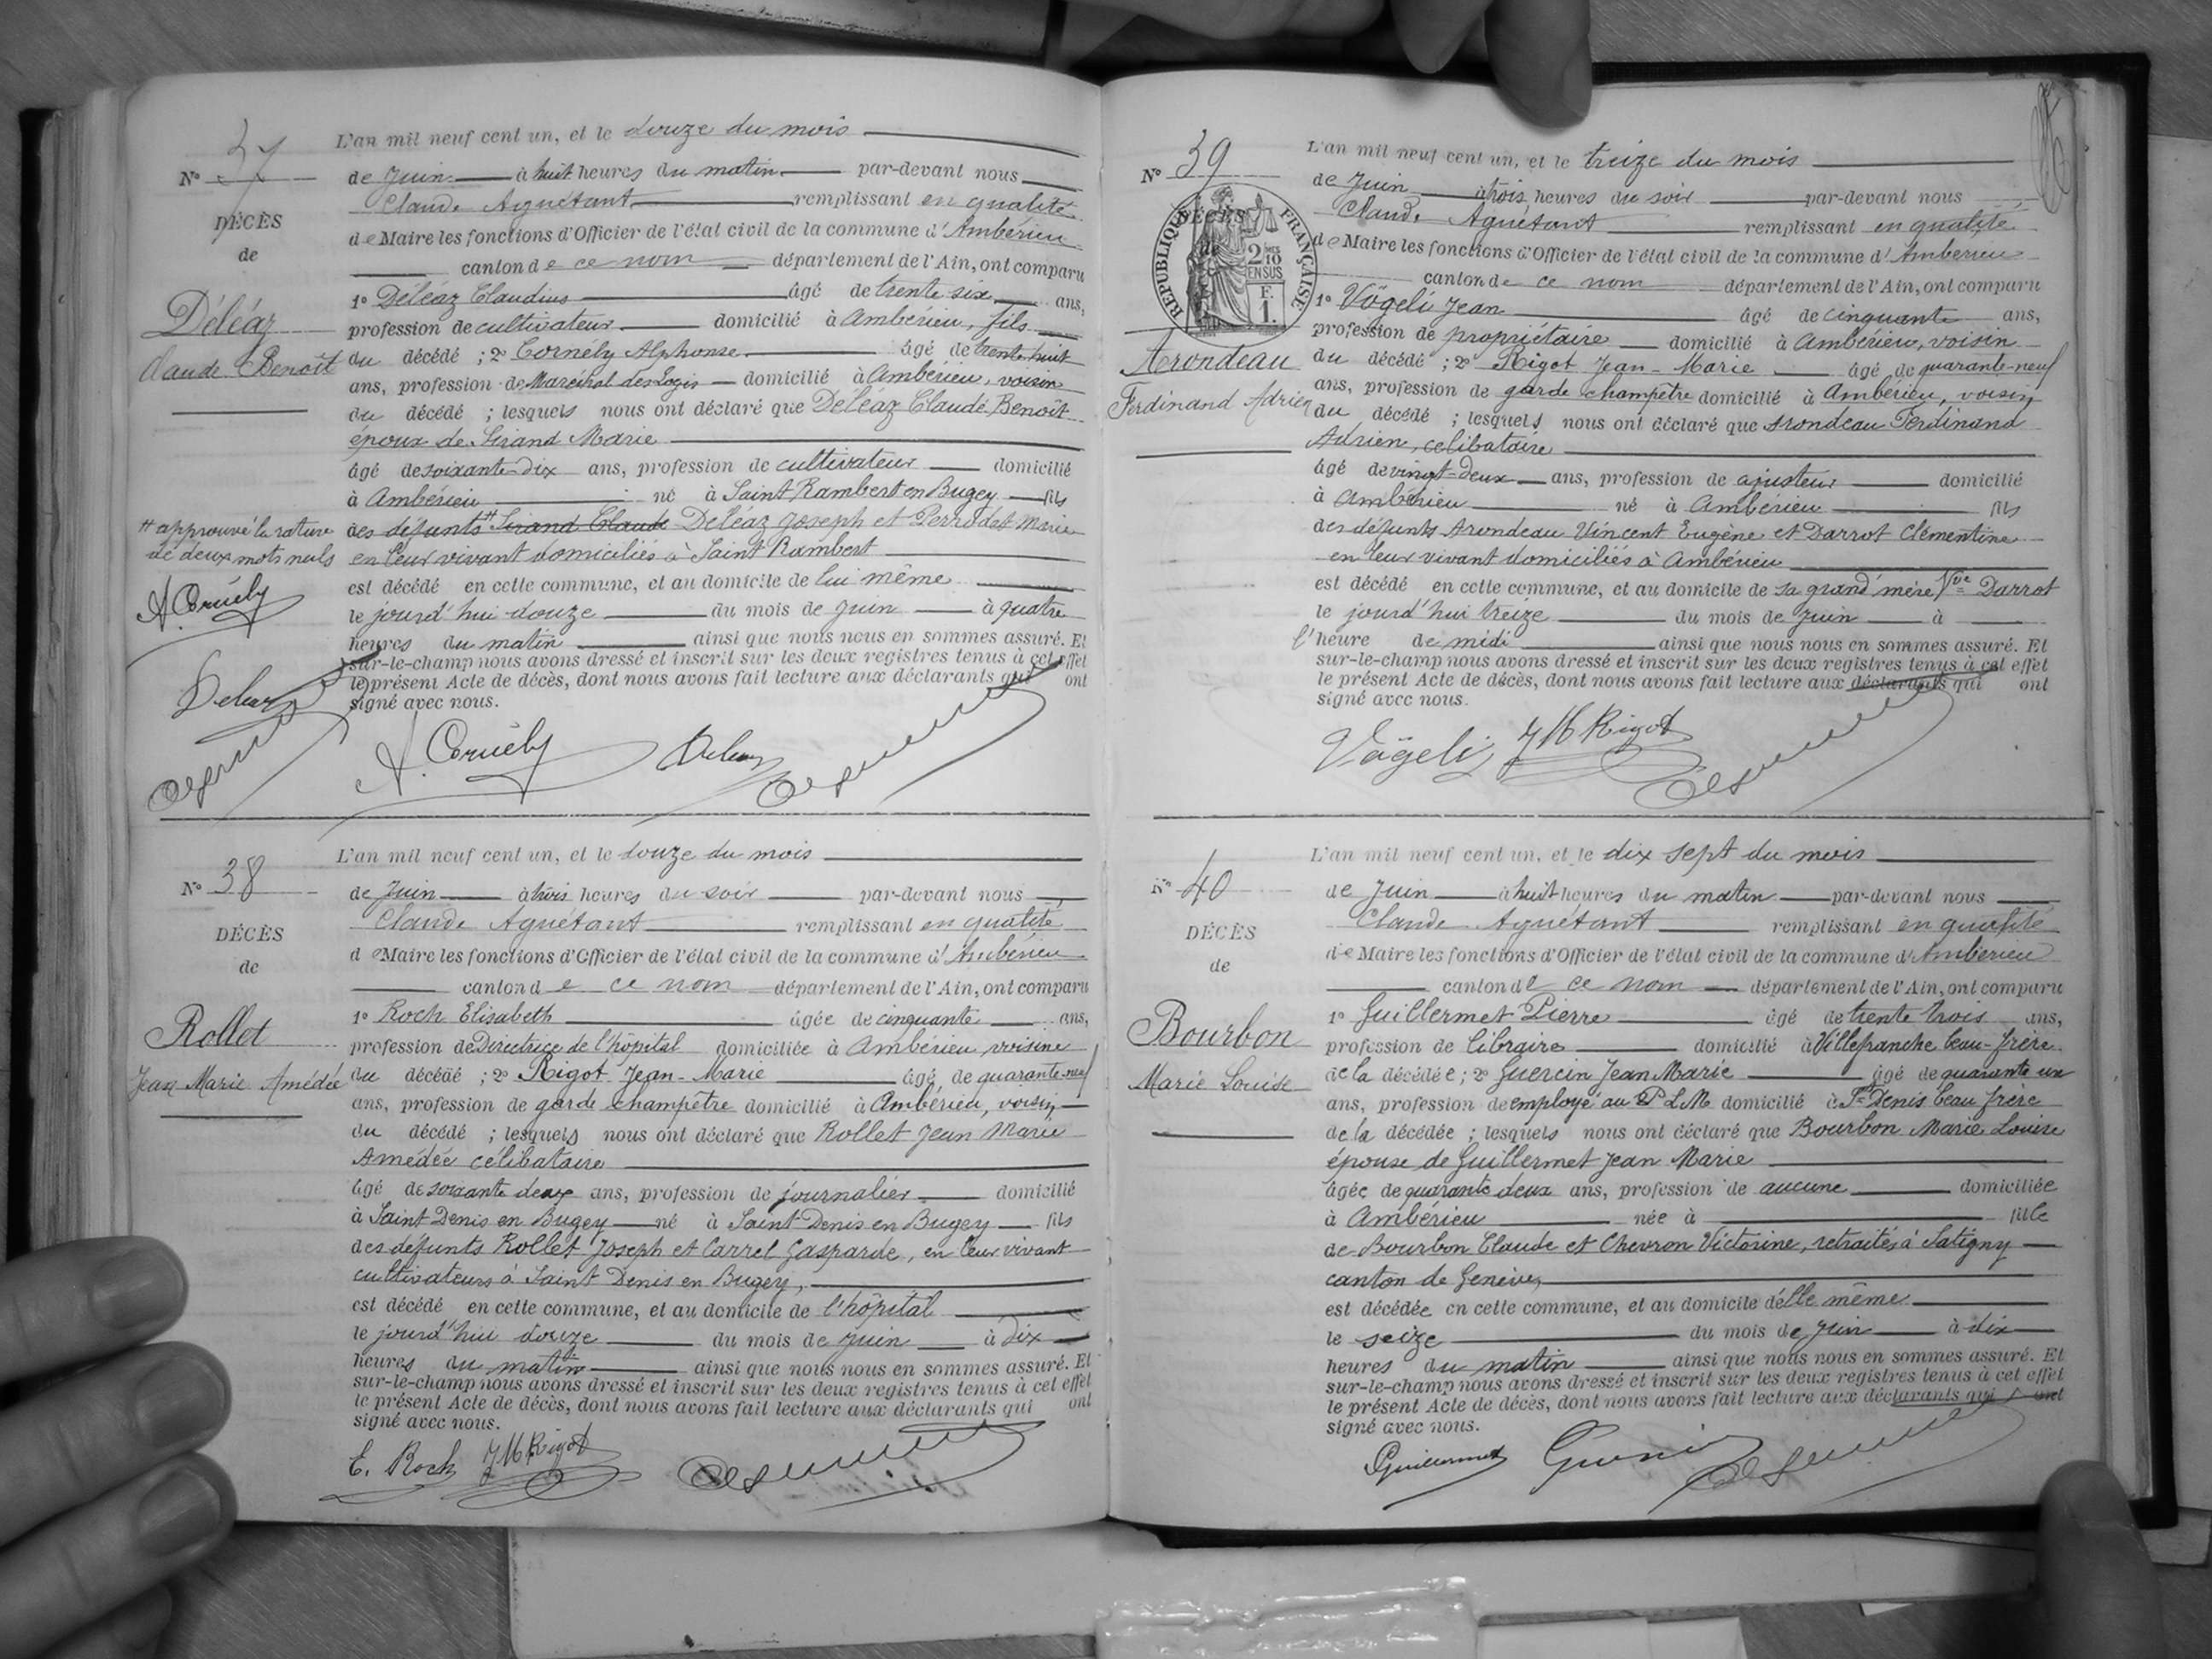 37
L'an mil neuf cent un, et le douze du mois
N°
de Juin à huit heures du matin par-devant nous
Claude Aguétant remplissant en qualité
DÉCÈS
de Maire les fonctions d'Officier de l'état civil de la commune d'Ambérieu
de
canton de ce nom département de l'Ain, ont comparu
1° Déléaz Claudius âgé de trente six ans,
Déléaz
profession de cultivateur domicilié à Ambérieu, fils
Claude Benoît
du décédé ; 2° Cornély Alphonse âgé de trente huit
ans, profession de Maréchal des Logis domicilié à Ambérieu, voisin
du décédé ; lesquels nous ont déclaré que Déléaz Claude Benoît
époux de Sirand Marie
âgé de soixante-dix ans, profession de cultivateur domicilié
à Ambérieu né à Saint Rambert en Bugey fils
# approuvé la rature
de deux mots nuls
des défunts # Sirand Claude Déléaz Joseph et Perrodet Marie
en leur vivant domiciliés à Saint Rambert
A. Cornély
est décédé en cette commune, et au domicile de lui même
le jourd'hui douze du mois de Juin à quatre
heures du matin ainsi que nous nous en sommes assuré. Et
sur-le-champ nous avons dressé et inscrit sur les deux registres tenus à cet effet
Deleaz
le présent Acte de décès, dont nous avons fait lecture aux déclarants qui ont
signé avec nous.
A. Cornély Deleaz
L'an mil neuf cent un, et le douze du mois
N° 38
de Juin à trois heures du soir par-devant nous
Claude Aguétant remplissant en qualité
DÉCÈS
de Maire les fonctions d'Officier de l'état civil de la commune d'Ambérieu
de
canton de ce nom département de l'Ain, ont comparu
1° Roch Elisabeth âgée de cinquante ans,
Rollet
profession de Directrice de l'hôpital domiciliée à Ambérieu voisine
Jean Marie Amédée
du décédé ; 2° Rigot Jean-Marie âgé de quarante-neuf
ans, profession de garde champêtre domicilié à Ambérieu, voisin
du décédé ; lesquels nous ont déclaré que Rollet Jean Marie
Amédée célibataire
âgé de soixante deux ans, profession de journalier domicilié
à Saint Denis en Bugey né à Saint Denis en Bugey fils
des défunts Rollet Joseph et Carrel Gasparde, en leur vivant
cultivateurs à Saint Denis en Bugey,
est décédé en cette commune, et au domicile de l'hôpital
le jourd'hui douze du mois de Juin à dix
heures du matin ainsi que nous nous en sommes assuré. Et
sur-le-champ nous avons dressé et inscrit sur les deux registres tenus à cet effet
le présent Acte de décès, dont nous avons fait lecture aux déclarants qui ont
signé avec nous.
E. Roch JM Rigot
L'an mil neuf cent un, et le treize du mois
N° 39
de Juin à trois heures du soir par-devant nous
Claude Aguétant remplissant en qualité
DÉCÈS
de
RÉPUBLIQUE FRANÇAISE
2/10 EN SUS
F. 1.
de Maire les fonctions d'Officier de l'état civil de la commune d'Ambérieu
canton de ce nom département de l'Ain, ont comparu
1° Vögeli Jean âgé de cinquante ans,
profession de propriétaire domicilié à Ambérieu, voisin
Arondeau
Ferdinand Adrien
du décédé ; 2° Rigot Jean-Marie âgé de quarante-neuf
ans, profession de garde champêtre domicilié à Ambérieu, voisin
du décédé ; lesquels nous ont déclaré que Arondeau Ferdinand
Adrien, célibataire
âgé de vingt-deux ans, profession de ajusteur domicilié
à Ambérieu né à Ambérieu fils
des défunts Arondeau Vincent Eugène et Darrot Clémentine
en leur vivant domiciliés à Ambérieu
est décédé en cette commune, et au domicile de sa grand'mère Vve Darrot
le jourd'hui treize du mois de Juin à
l'heure de midi ainsi que nous nous en sommes assuré. Et
sur-le-champ nous avons dressé et inscrit sur les deux registres tenus à cet effet
le présent Acte de décès, dont nous avons fait lecture aux déclarants qui ont
signé avec nous.
Vögeli JM Rigot
L'an mil neuf cent un, et le dix sept du mois
N° 40
de Juin à huit heures du matin par-devant nous
Claude Aguétant remplissant en qualité
DÉCÈS
de Maire les fonctions d'Officier de l'état civil de la commune d'Ambérieu
de
canton de ce nom département de l'Ain, ont comparu
1° Guillermet Pierre âgé de trente trois ans,
Bourbon
profession de libraire domicilié à Villefranche beau-frère
Marie Louise
de la décédée ; 2° Guercin Jean Marie âgé de quarante un
ans, profession de employé au P L M domicilié à St Denis beau frère
de la décédée ; lesquels nous ont déclaré que Bourbon Marie Louise
épouse de Guillermet Jean Marie
âgée de quarante deux ans, profession de aucune domiciliée
à Ambérieu née à fille
de Bourbon Claude et Chevron Victorine, retraités à Satigny
canton de Genève,
est décédée en cette commune, et au domicile d'elle même
le seize du mois de Juin à dix
heures du matin ainsi que nous nous en sommes assuré. Et
sur-le-champ nous avons dressé et inscrit sur les deux registres tenus à cet effet
le présent Acte de décès, dont nous avons fait lecture aux déclarants qui ont
signé avec nous.
Guillermet